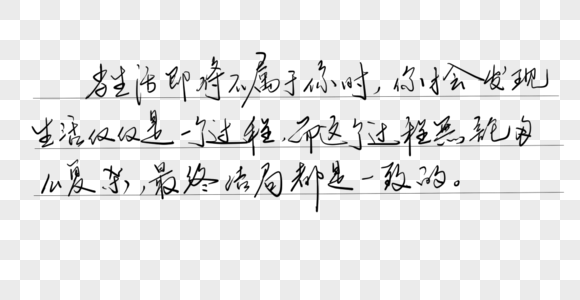 当生活即将不属于你时，你才会发现
生活仅仅是一个过程，而这个过程无论多
么复杂，最终结局都是一致的。